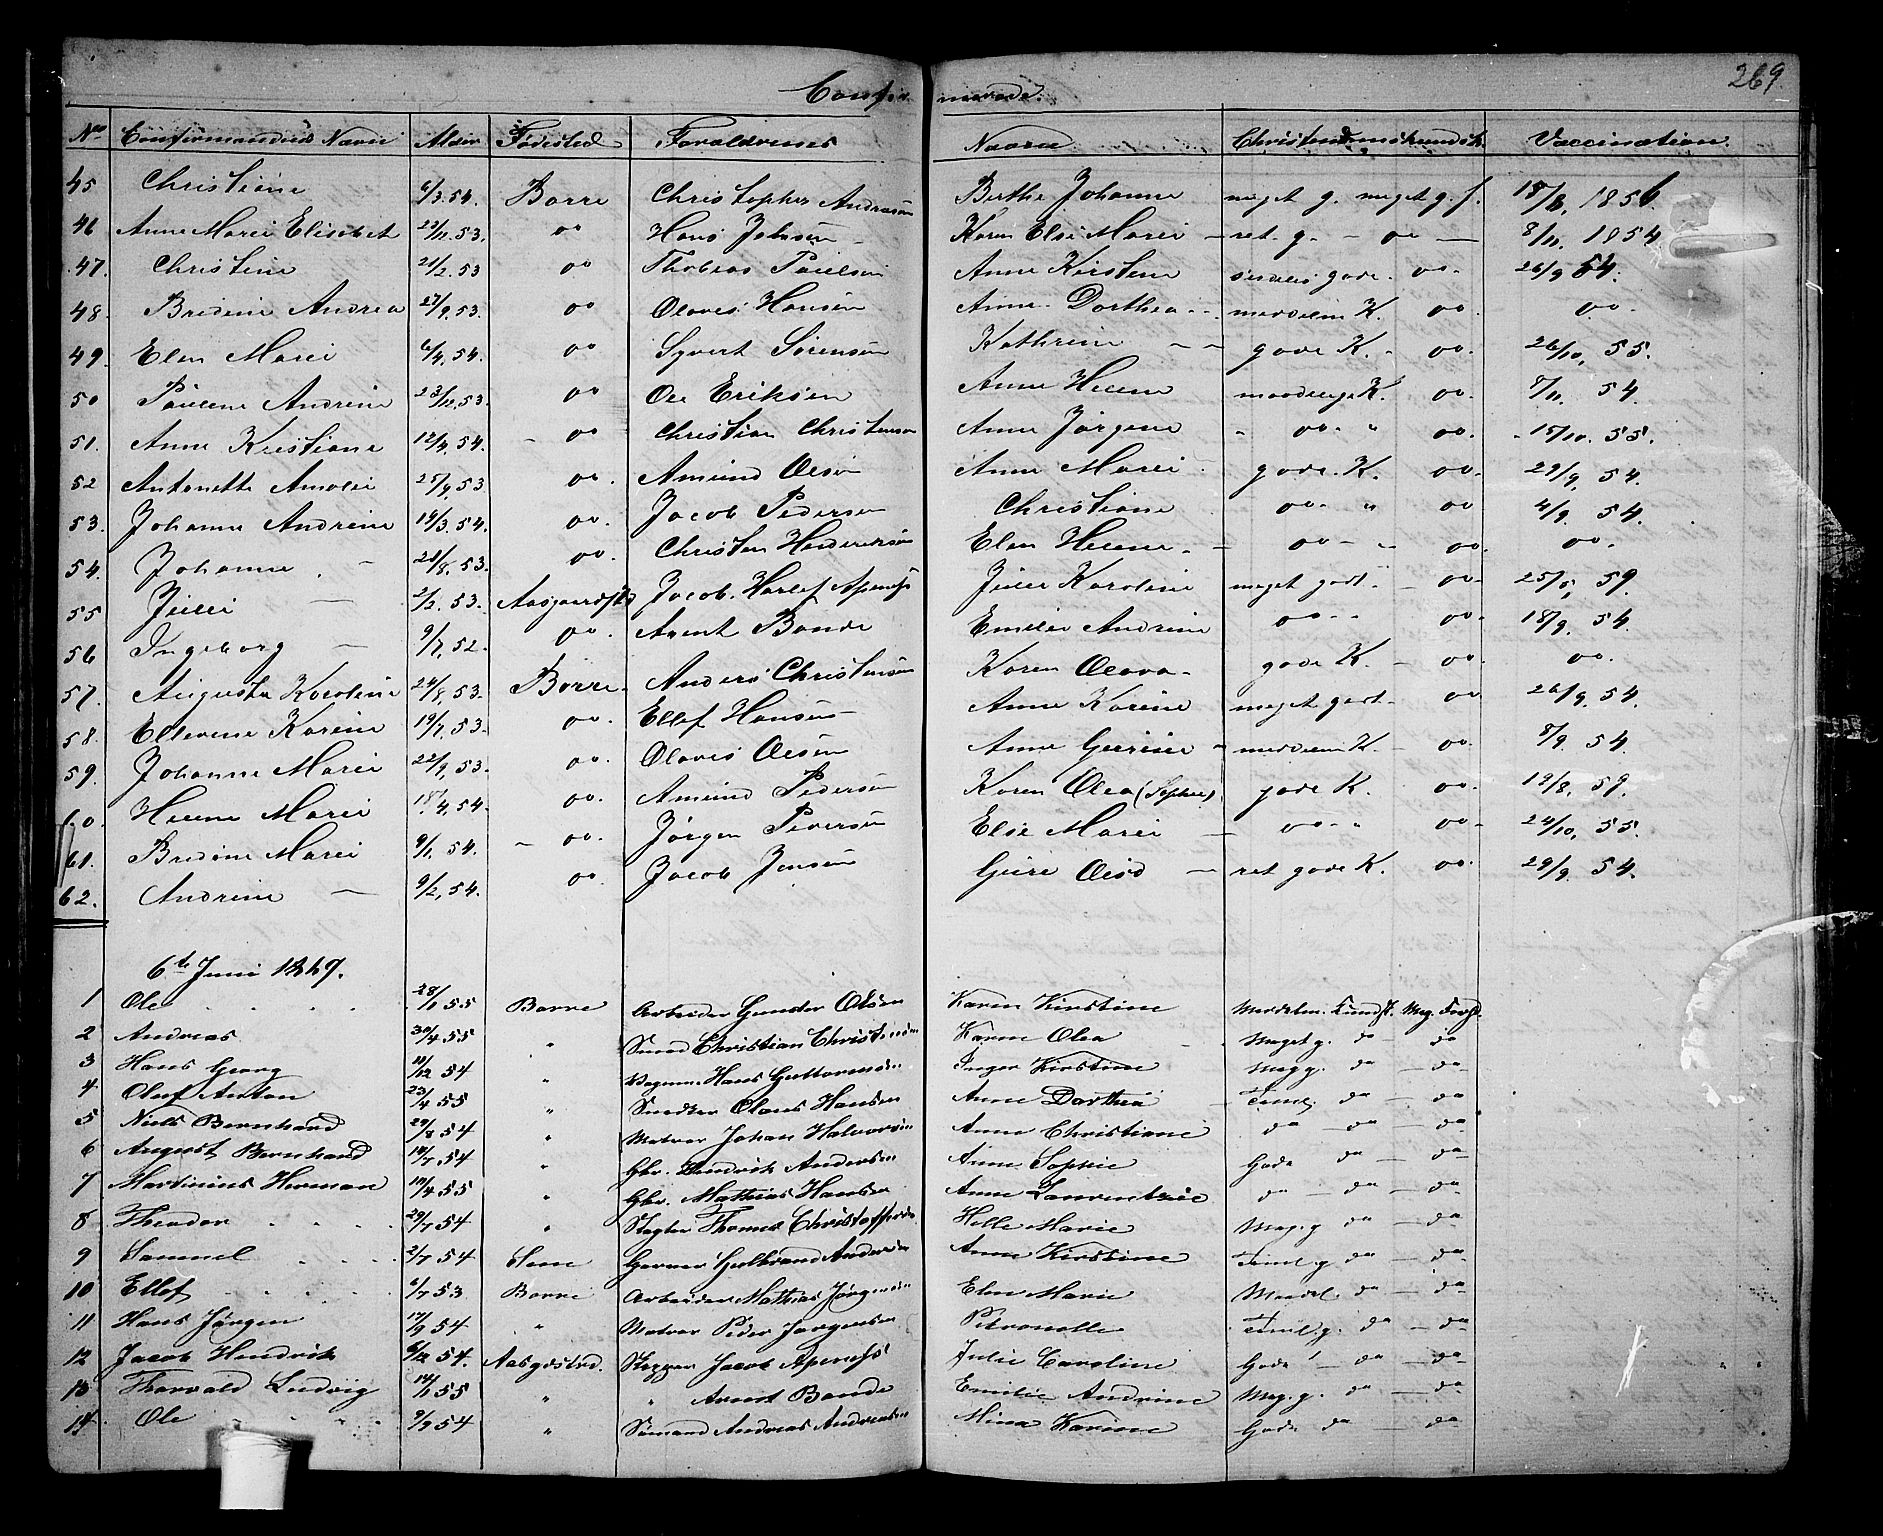 Confirmerede. 269
No Confirmandens Navn Alder Fødested Foraldrenes Navne Christendomskundsk. Vaccination.
45 Christiane 6/3.54. Borre Christopher Andersøn Berthe Johanne meget g. meget g. f. 15/8. 1856
46 Anne Marei Elisabet 23/11.53. oo Hans Johnsøn Karen Else Marei ret g. oo 8/11. 1854
47. Christine 21/2.53 oo Thobias Paulsen Anne Kirstene gode. oo 26/9 54.
48. Bredine Andrea 27/9.53. oo Olaves Hansen Anne Dorthea meddelm K. oo oo.
49. Elen Marei 6/4.54. oo Syvert Sørensøn Kathrine gode K. oo. 26/10, 55.
50 Paulene Andrine 23/12.53. oo Ole Eriksen Anne Helene K. oo. 8/11. 54.
51. Anne Kristiane 12/4, 54. oo Christian Christensøn Anne Jørgene " oo " oo. 15/10. 55.
52 Antonette Amalei 25/9, 53 oo. Amund Olsøn Anne Marei gode. K. oo. 29/9, 54.
53. Johanne Andrine 14/3.54. oo. Jacob Pedersen Christiane oo " oo 4/9. 54.
54. Johanne 28/8.53. oo. Christen Henderiksøn Elen Helene oo oo. oo.
55 Julei 2/2.53. Aasgaardst. Jacob. Harlof Apenæs Julie Karoline meget godt oo 25/5, 59.
56 Ingeborg 9/7, 52. oo. Arent Bande Emilie Andrine oo oo. 18/9. 54.
57. Augusta Karoline 24/8, 53. Borre Anders Christensøn Karen Oleava gode K. oo. oo.
58. Ellevene Karine 19/7, 53. oo. Ellef Hansøn Anne Karine meget godt oo 26/9. 54.
59. Johanne Marei 22/9, 53. oo. Olaves Olsøn Anne Gurine meddelm K. oo. 8/9. 54
60. Helene Marei 18/4, 54. oo. Amund Pedersøn Karen Olea (Sophie) gode K. oo. 19/8, 59.
61. Bredine Marei 9/1, 54. oo. Jørgen Pedersøn Else Marei oo " oo 24/10, 55.
62. Andrine 9/2, 54. oo. Jacob Jensøn Guri Olsd ret gode K. oo. 29/9. 54.
6te Juni 1869.
1 Ole 28/1 55 Borre Arbeider Gunder Olsen Karen Kirstine Meddelm. Kundsk. Meg. Forh.
2 Andreas 30/4 55 " Smed Christian Christensen Karen Olea Meget g. do do
3 Hans Georg 11/12 54 " Hans Guttormsen Inger Kirstine Meg g. do do
4 Oluf Anton 23/4 55 " Snedker Olaus Hansen Anne Dorthea Teml. do do
5 Niels Bernhard 29/8 54 " Matros Johan Halvorsen Anne Christiane do do do
6 August Bernhard 14/7 54 " Gbr. Hendrik Andersen Anne Sophie Gode do do
7 Martinius Herman 10/4 55 " Gbr. Mathias Hansen Anne Laurentzie do do do
8 Theodor 29/7 54 " Slagter Thomas Christoffersen Helle Marie Meg. g do do
9 Samuel 2/7 54 Sem Garver Gulbrand Andersen Anne Kirstine Teml g do do
10 Ellef 6/7 53 Borre Arbeider Mathias Jørgensen Elen Marie Meddel. do do
11 Hans Jørgen 17/9 54 " Matros Peder Jørgensen Petronelle Teml. g. do do
12 Jacob Hendrik 6/12 54. Aasgdstrd. Skipper Jacob Apenæs Julie Caroline Gode do do
13 Thorvald Ludvig 14/1 55 " " Arent Bande Emilie Andrine Meg. g. do do
14 Ole 9/9 54 " Sømand Andreas Andreasen Mina Karine Gode do do